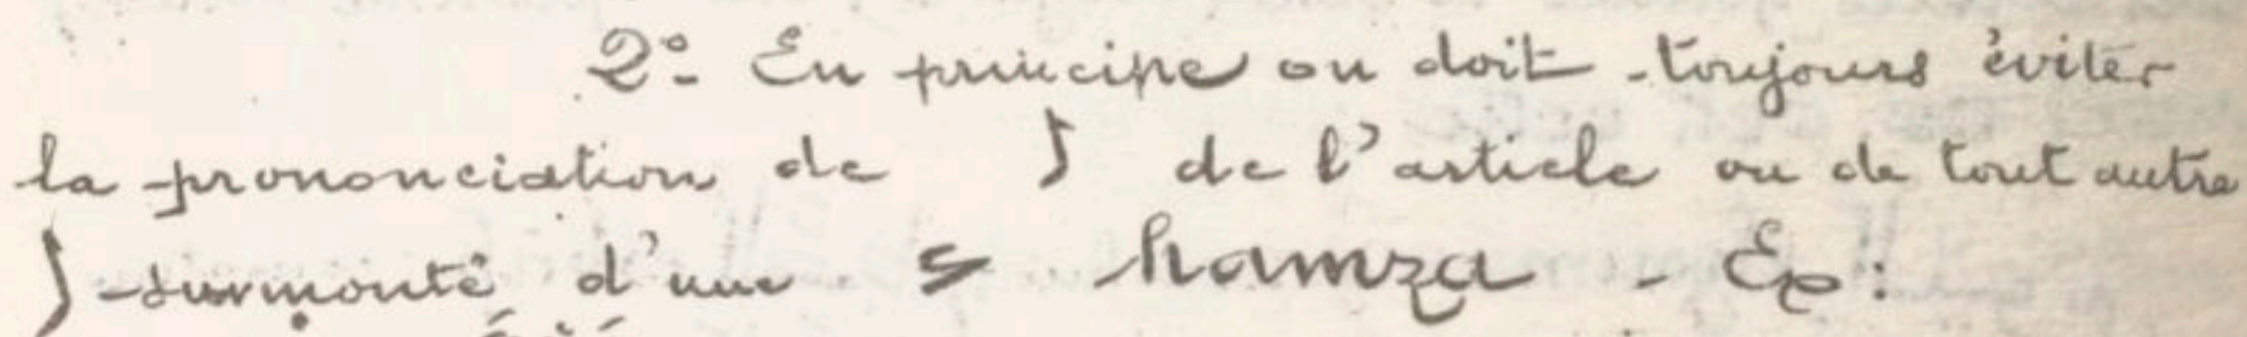 2º- En principe on doit toujours éviter
la prononciation de ا de l'article ou de tout autre
ا surmonté d'une ء hamza - Ex: